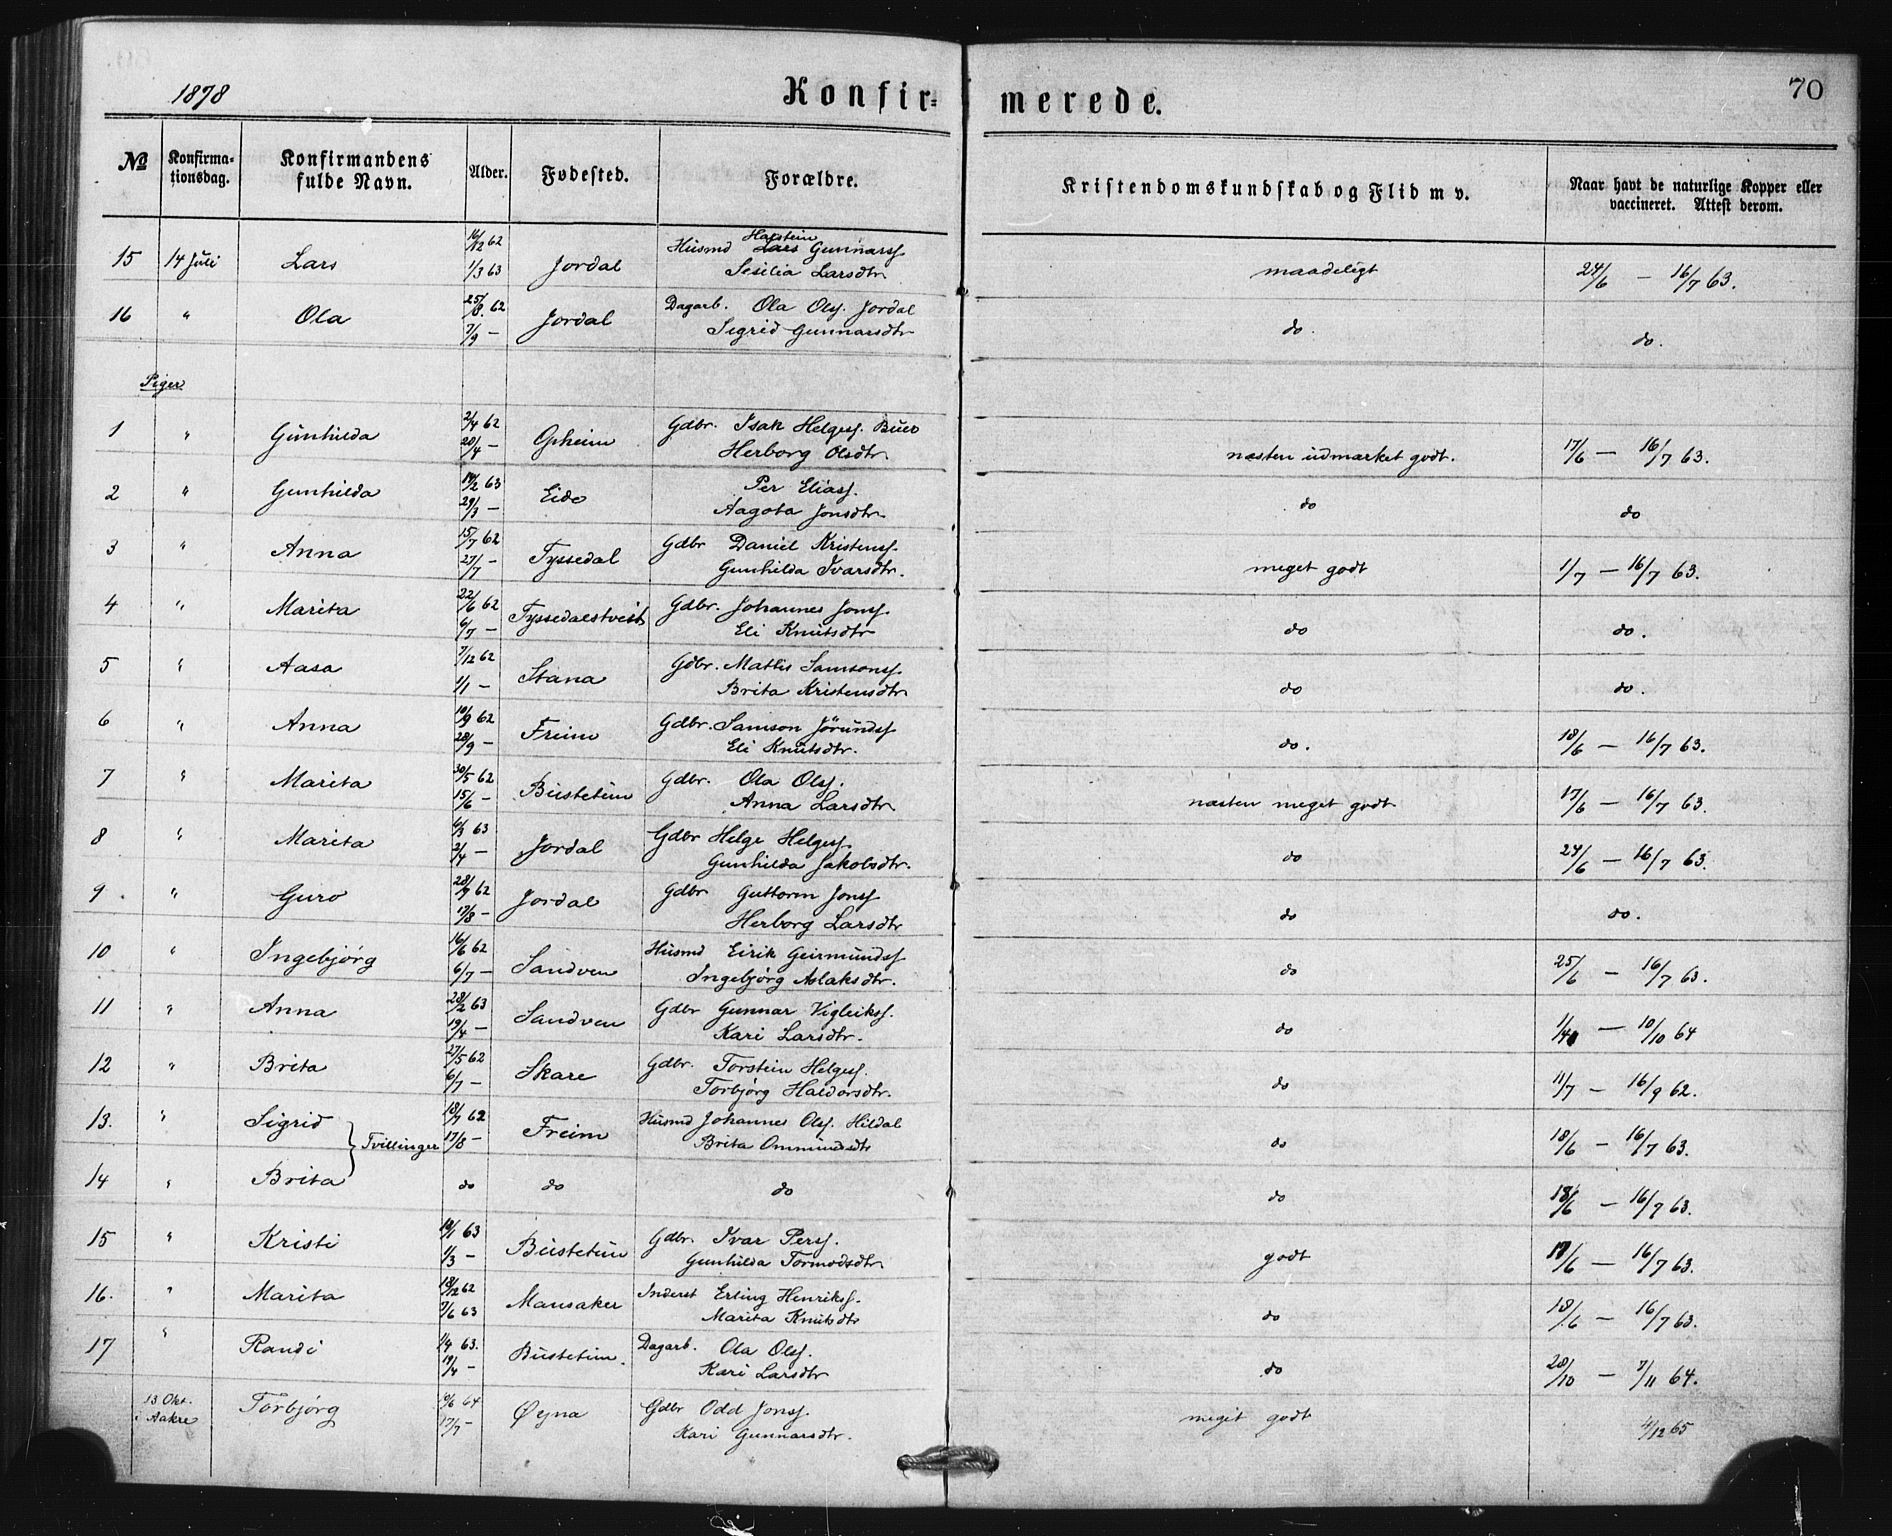 1878 Konfir= merede. 70
№ Konfirma= tionsdag. Konfirmandens fulde Navn. Alder. Fødested. Forældre. Kristendomskundskab og Flid m v. Naar havt de naturlige Kopper eller vaccineret. Attest derom.
15 14 Juli Lars 16/12 62 Jordal Husmd Lars Halstein Gunnarss. maadeligt 24/6 — 16/7 63.
1/3 63 Sesilia Larsdtr
16 " Ola 25/8. 62 Jordal Dagarb. Ola Olss. Jordal do. do.
7/9 — Sigrid Gunnarsdtr
Piger
1 " Gunhilda 2/4 62 Opheim Gdbr. Isak Helgess. Buer næsten udmærket godt. 17/6 — 16/7 63.
20/4 — Herborg Olsdtr
2 " Gunhilda 63 Eide Per Eliass. do do
29/3 — Aagota Jonsdtr
3 " Anna 15/7 62 Tyssedal Gdbr Daniel Kristenss. meget godt 1/7 — 16/7 63.
27/7 — Gunhilda Ivarsdtr.
4 " Marita 22/6 62 Tyssedalstveit Gdbr. Johannes Jonss. do do.
6/7 — Eli Knutsdtr
5 " Aasa 7/12 62 Stana Gdbr. Mattis Samsonss. do do.
1/1 — Brita Kristensdtr
6 " Anna 10/9 62 Freim Gdbr. Samson Jörundss. do. 18/6 — 16/7 63.
28/9 — Eli Knutsdtr.
7 " Marita 30/5 62 Bustetun Gdbr. Ola Olss. næsten meget godt 17/6 — 16/7 63.
15/6 — Anna Larsdtr
8 " Marita 63 Jordal Gdbr Helge Helgess. do 24/6 — 16/7 63.
2/4 — Gunhilda Jakobsdtr.
9. " Guro 62 Jordal Gdbr Guttorm Jonss. do do.
17/8 — Herborg Larsdtr
10 " Ingebjørg 16/6 62 Sandven Husmd Eirik Geirmundss. do 25/6 — 16/7 63.
6/7 — Ingebjørg Aslaksdtr.
11 " Anna 28/2 63 Sandven Gdbr Gunnar Vigleikss. do — 10/10 64
19/4 — Kari Larsdtr.
12 " Brita 27/5 62 Skare Gdbr. Torstein Helgess. do 11/7 — 16/9 62.
6/7 — Torbjørg Haldorsdtr.
13. " Sigrid 18/7 62 Freim Husmd Johannes Olss. Hildal do 18/6 — 16/7 63.
Tvillinger 17/8 — Brita Ommundsdtr
14 " Brita do do do do 18/6 — 16/7 63.
15 " Kristi 63 Bustetun Gdbr. Ivar Perss. godt 17/6 — 16/7 63.
1/3 — Gunhilda Tormodsdtr
16. " Marita 18/12 62 Mansaker Inderst Erling Henrikss. do 18/6 — 16/7 63.
7/6 63 Marita Knutsdtr
17 " Randi 1/4 63. Bustetun. Dagarb. Ola Olss. do 28/10 — 7/11 64.
19/4 — Kari Larsdtr
13 Okt. i Aakre Torbjørg 64 Øyna Gdbr Odd Jonss. meget godt 4/12 65
17/7 — Kari Gunnarsdtr.